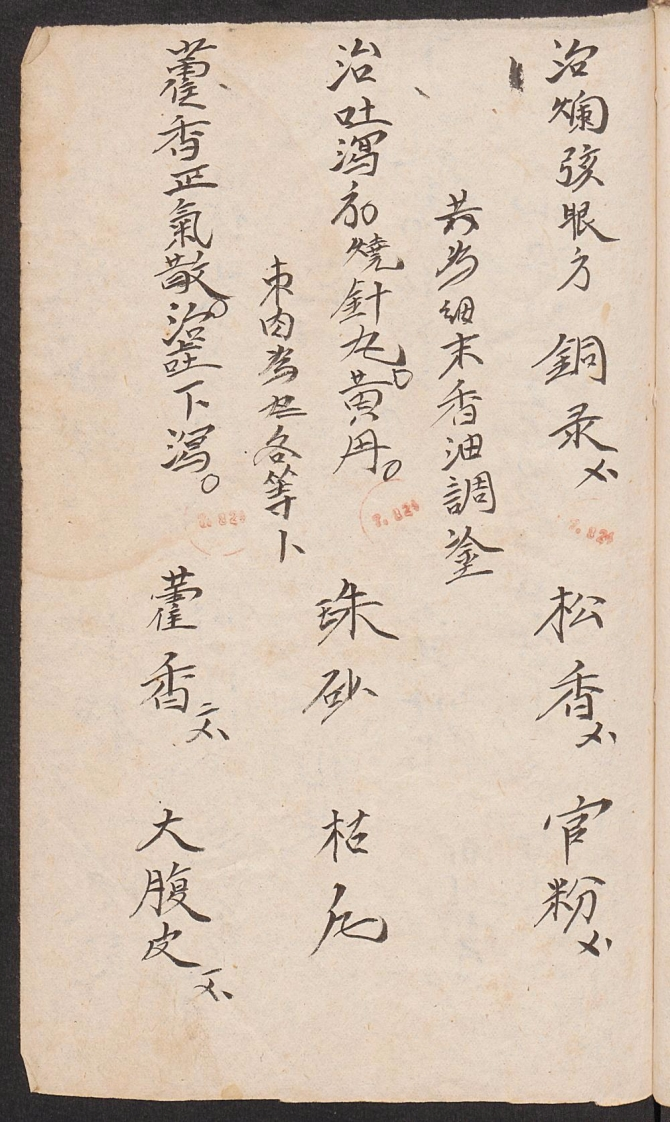 治爛弦眼方 銅录 松香 官粉
共為細末香油調塗
治吐瀉方 燒針丸 黄丹 珠砂 枯凡
束肉為丸各等卜
藿香正氣散 治吐下瀉 藿香 大腹皮